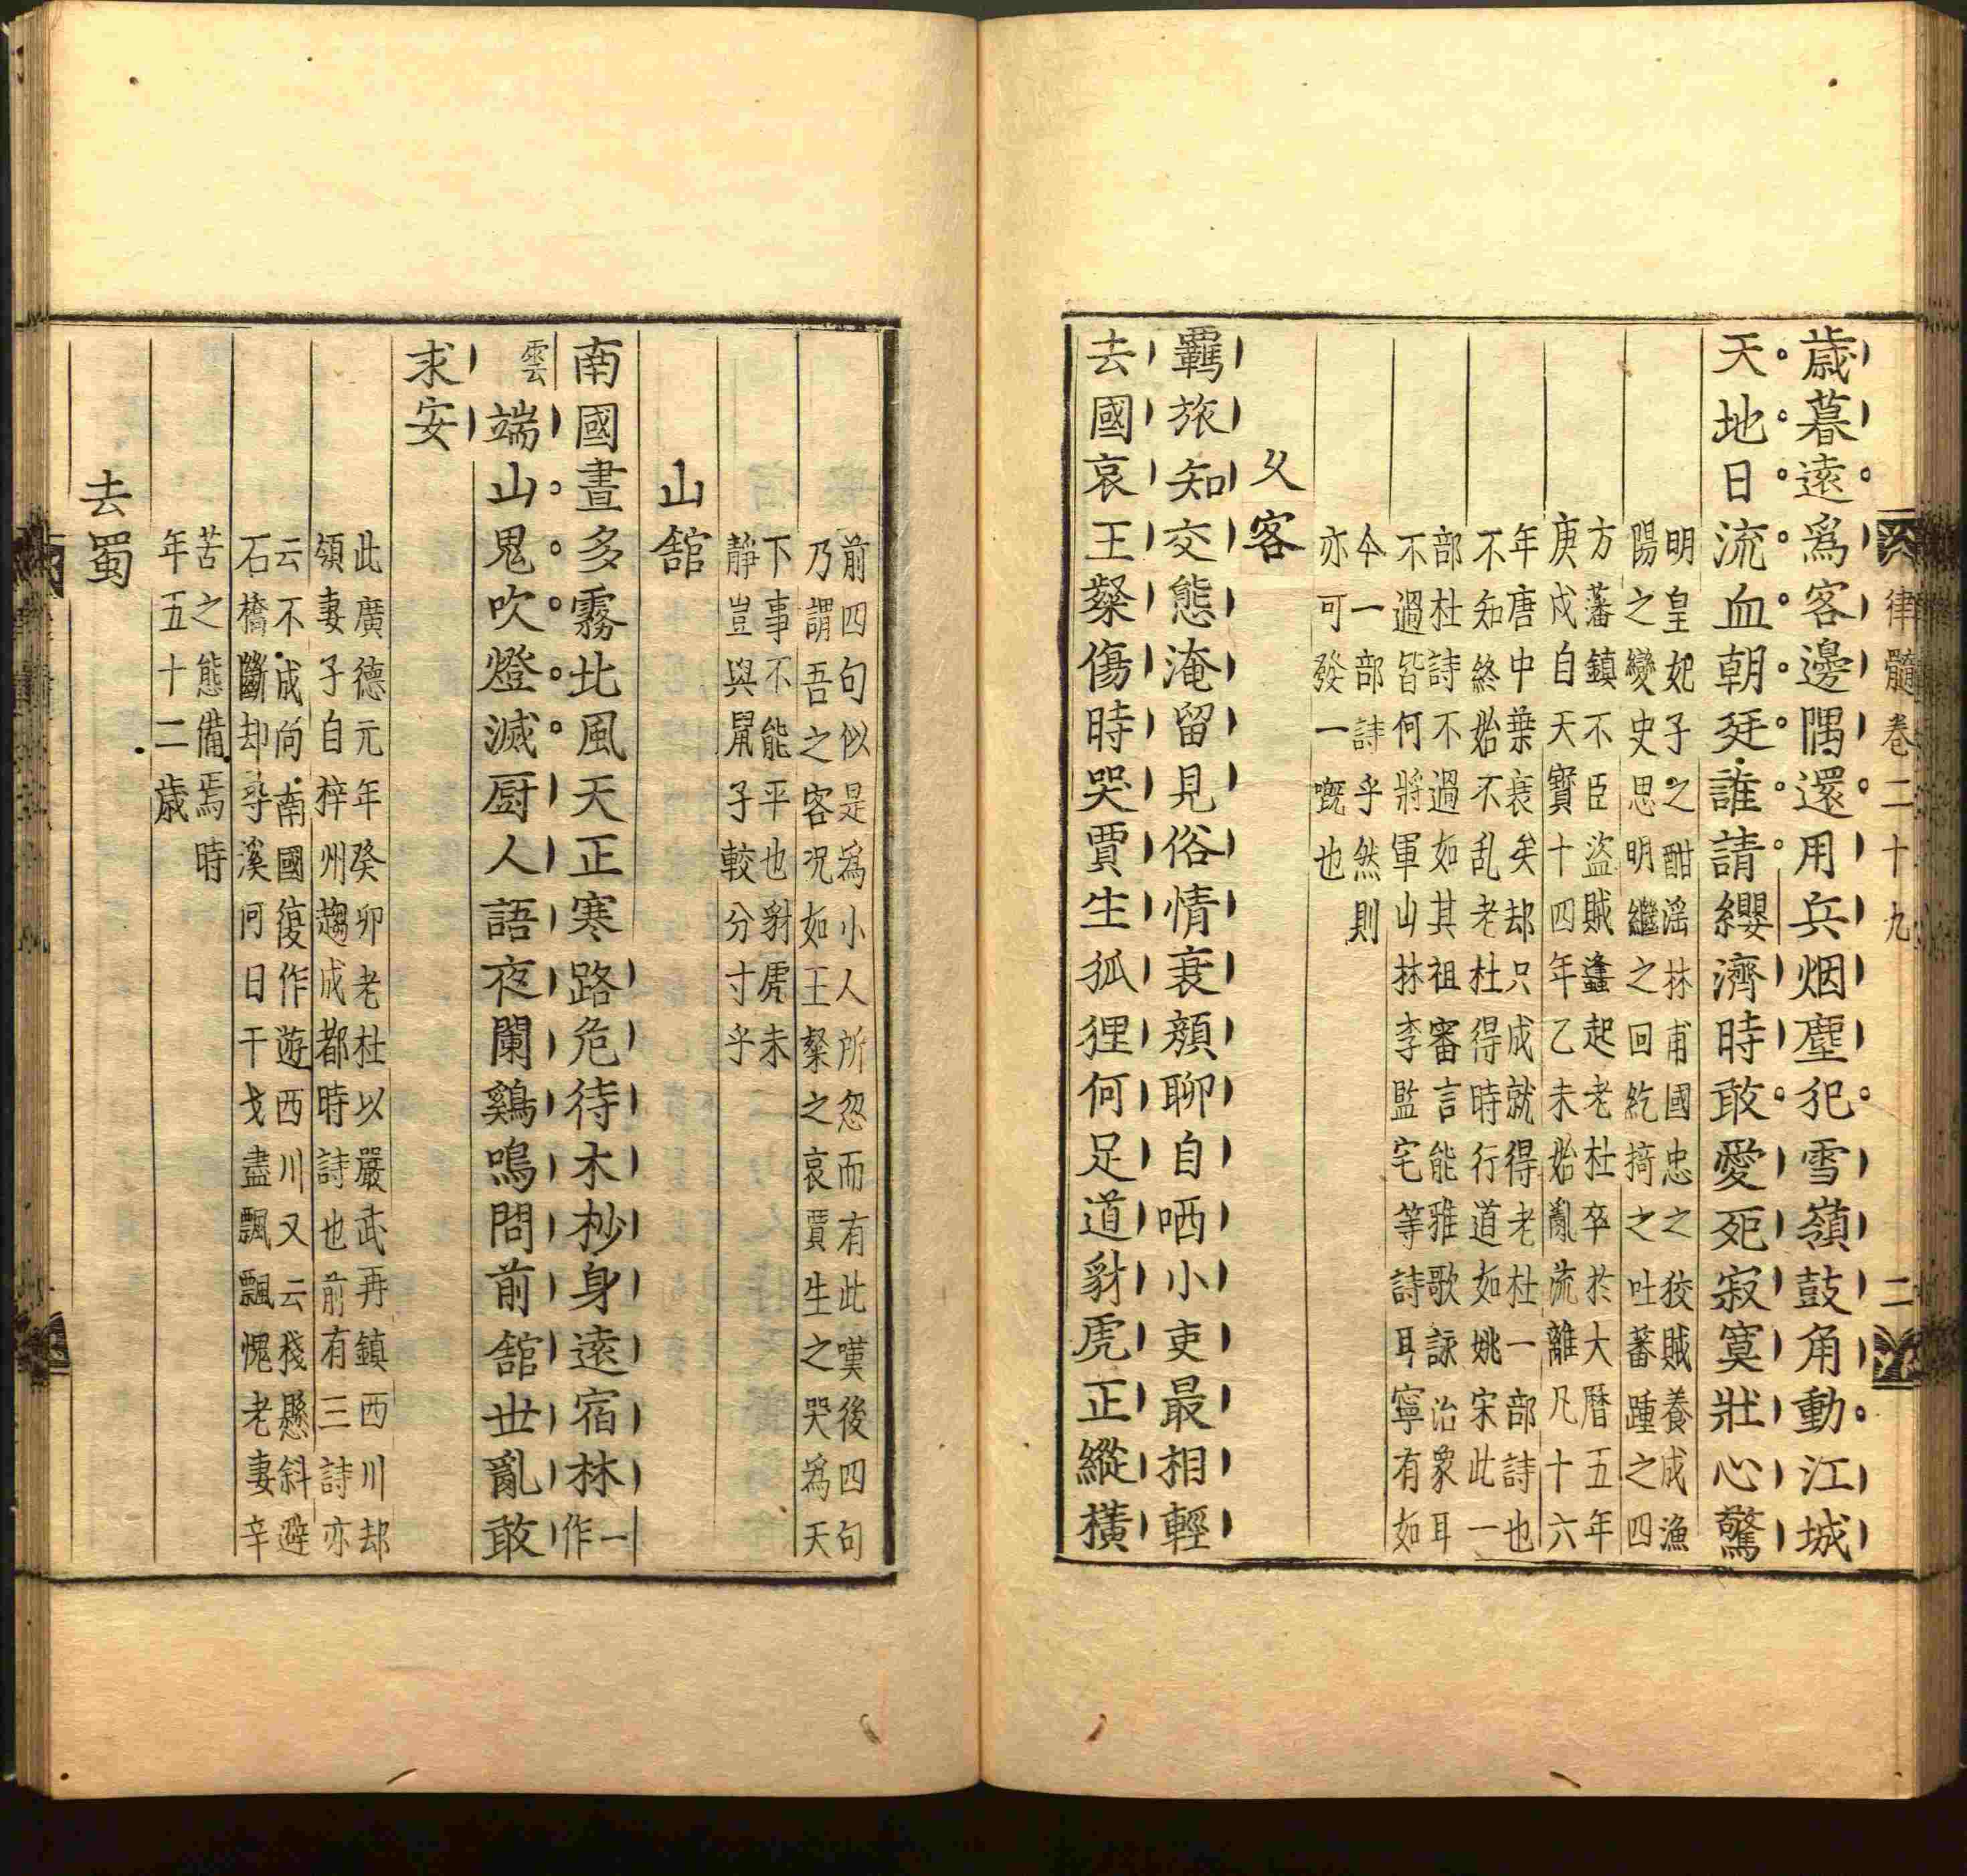 律髓卷二十九 二
歳暮遠爲客邊隅還用兵烟塵犯雪嶺鼓角動江城
天地日流血朝廷誰請纓濟時敢愛死寂寞壯心驚
明皇妃子之酣滛林甫國忠之狡賊養成漁
陽之變史思明繼之回紇掎之吐蕃踵之四
方藩鎮不臣盜賊蠭起老杜卒於大曆五年
庚戌自天寳十四年乙未始亂流離凡十六
年唐中葉衰矣却只成就得老杜一部詩也
不知終始不乱老杜得時行道如姚宋此一
部杜詩不過如其祖審言能雅歌詠治象耳
不過皆何將軍山林李監宅等詩耳寧有如
今一部詩乎然則
亦可發一嘅也
乆客
羈旅知交態淹留見俗情衰顔聊自哂小吏最相輕
去國哀王粲傷時哭賈生狐狸何足道豺虎正縱橫
前四句似是爲小人所忽而有此嘆後四句
乃謂吾之客况如王粲之哀賈生之哭爲天
下事不能平也豺虎未
靜豈與鼠子較分寸乎
山舘
南國晝多霧北風天正寒路危待木杪身遠宿林一作
雲端山鬼吹燈滅厨人語夜闌鷄鳴問前舘世亂敢
求安
此廣德元年癸卯老杜以嚴武再鎮西川却
領妻子自梓州趨成都時詩也前有三詩亦
云不成尚南國復作遊西川又云棧懸斜避
石橋斷却尋溪何日干戈盡飄飄愧老妻辛
苦之態備焉時
年五十二歳
去蜀